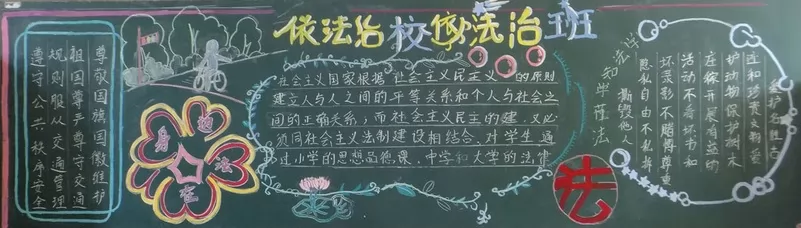 依法治校 依法治班
尊敬国旗国徽维护
祖国尊严遵守交通
规则服从交通管理
遵守公共秩序安全
身边的法
在社会主义国家根据社会主义民主义的原则
建立人与人之间的平等关系和个人与社会之
间的正确关系；而社会主义民主的建，又必
须同社会主义法制建设相结合，对学生通
过小学的思想品德课，中学和大学的法律
法
学法
知法
守法
护动物保护树木
庄候开展有益的
活动不看坏书和
坏录影不赌博尊重
隐私自由不乱弃
撕毁他人